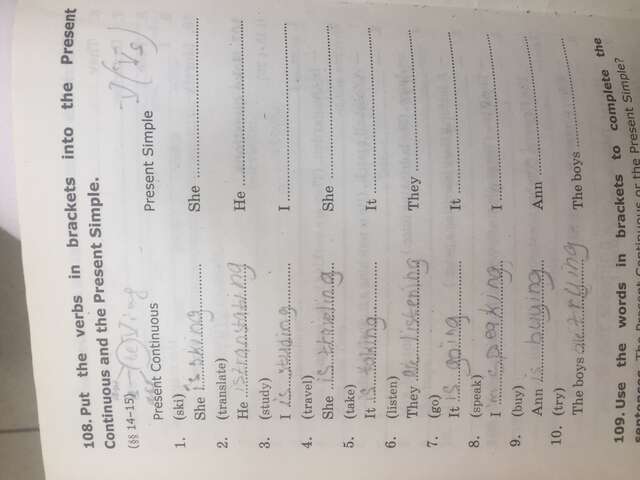 108. Put the verbs in brackets into the Present
Continuous and the Present Simple.
(§§ 14–15)
Present Continuous Present Simple
1. (ski)
She is sking She
2. (translate)
He is translating He
3. (study)
I is studing I
4. (travel)
She is traveling She
5. (take)
It is taking It
6. (listen)
They are listening They
7. (go)
It is going It
8. (speak)
I 'm speaking I
9. (buy)
Ann is buying Ann
10. (try)
The boys are trying The boys
109. Use the words in brackets to complete the
sentences. The Present Continuous or the Present Simple?